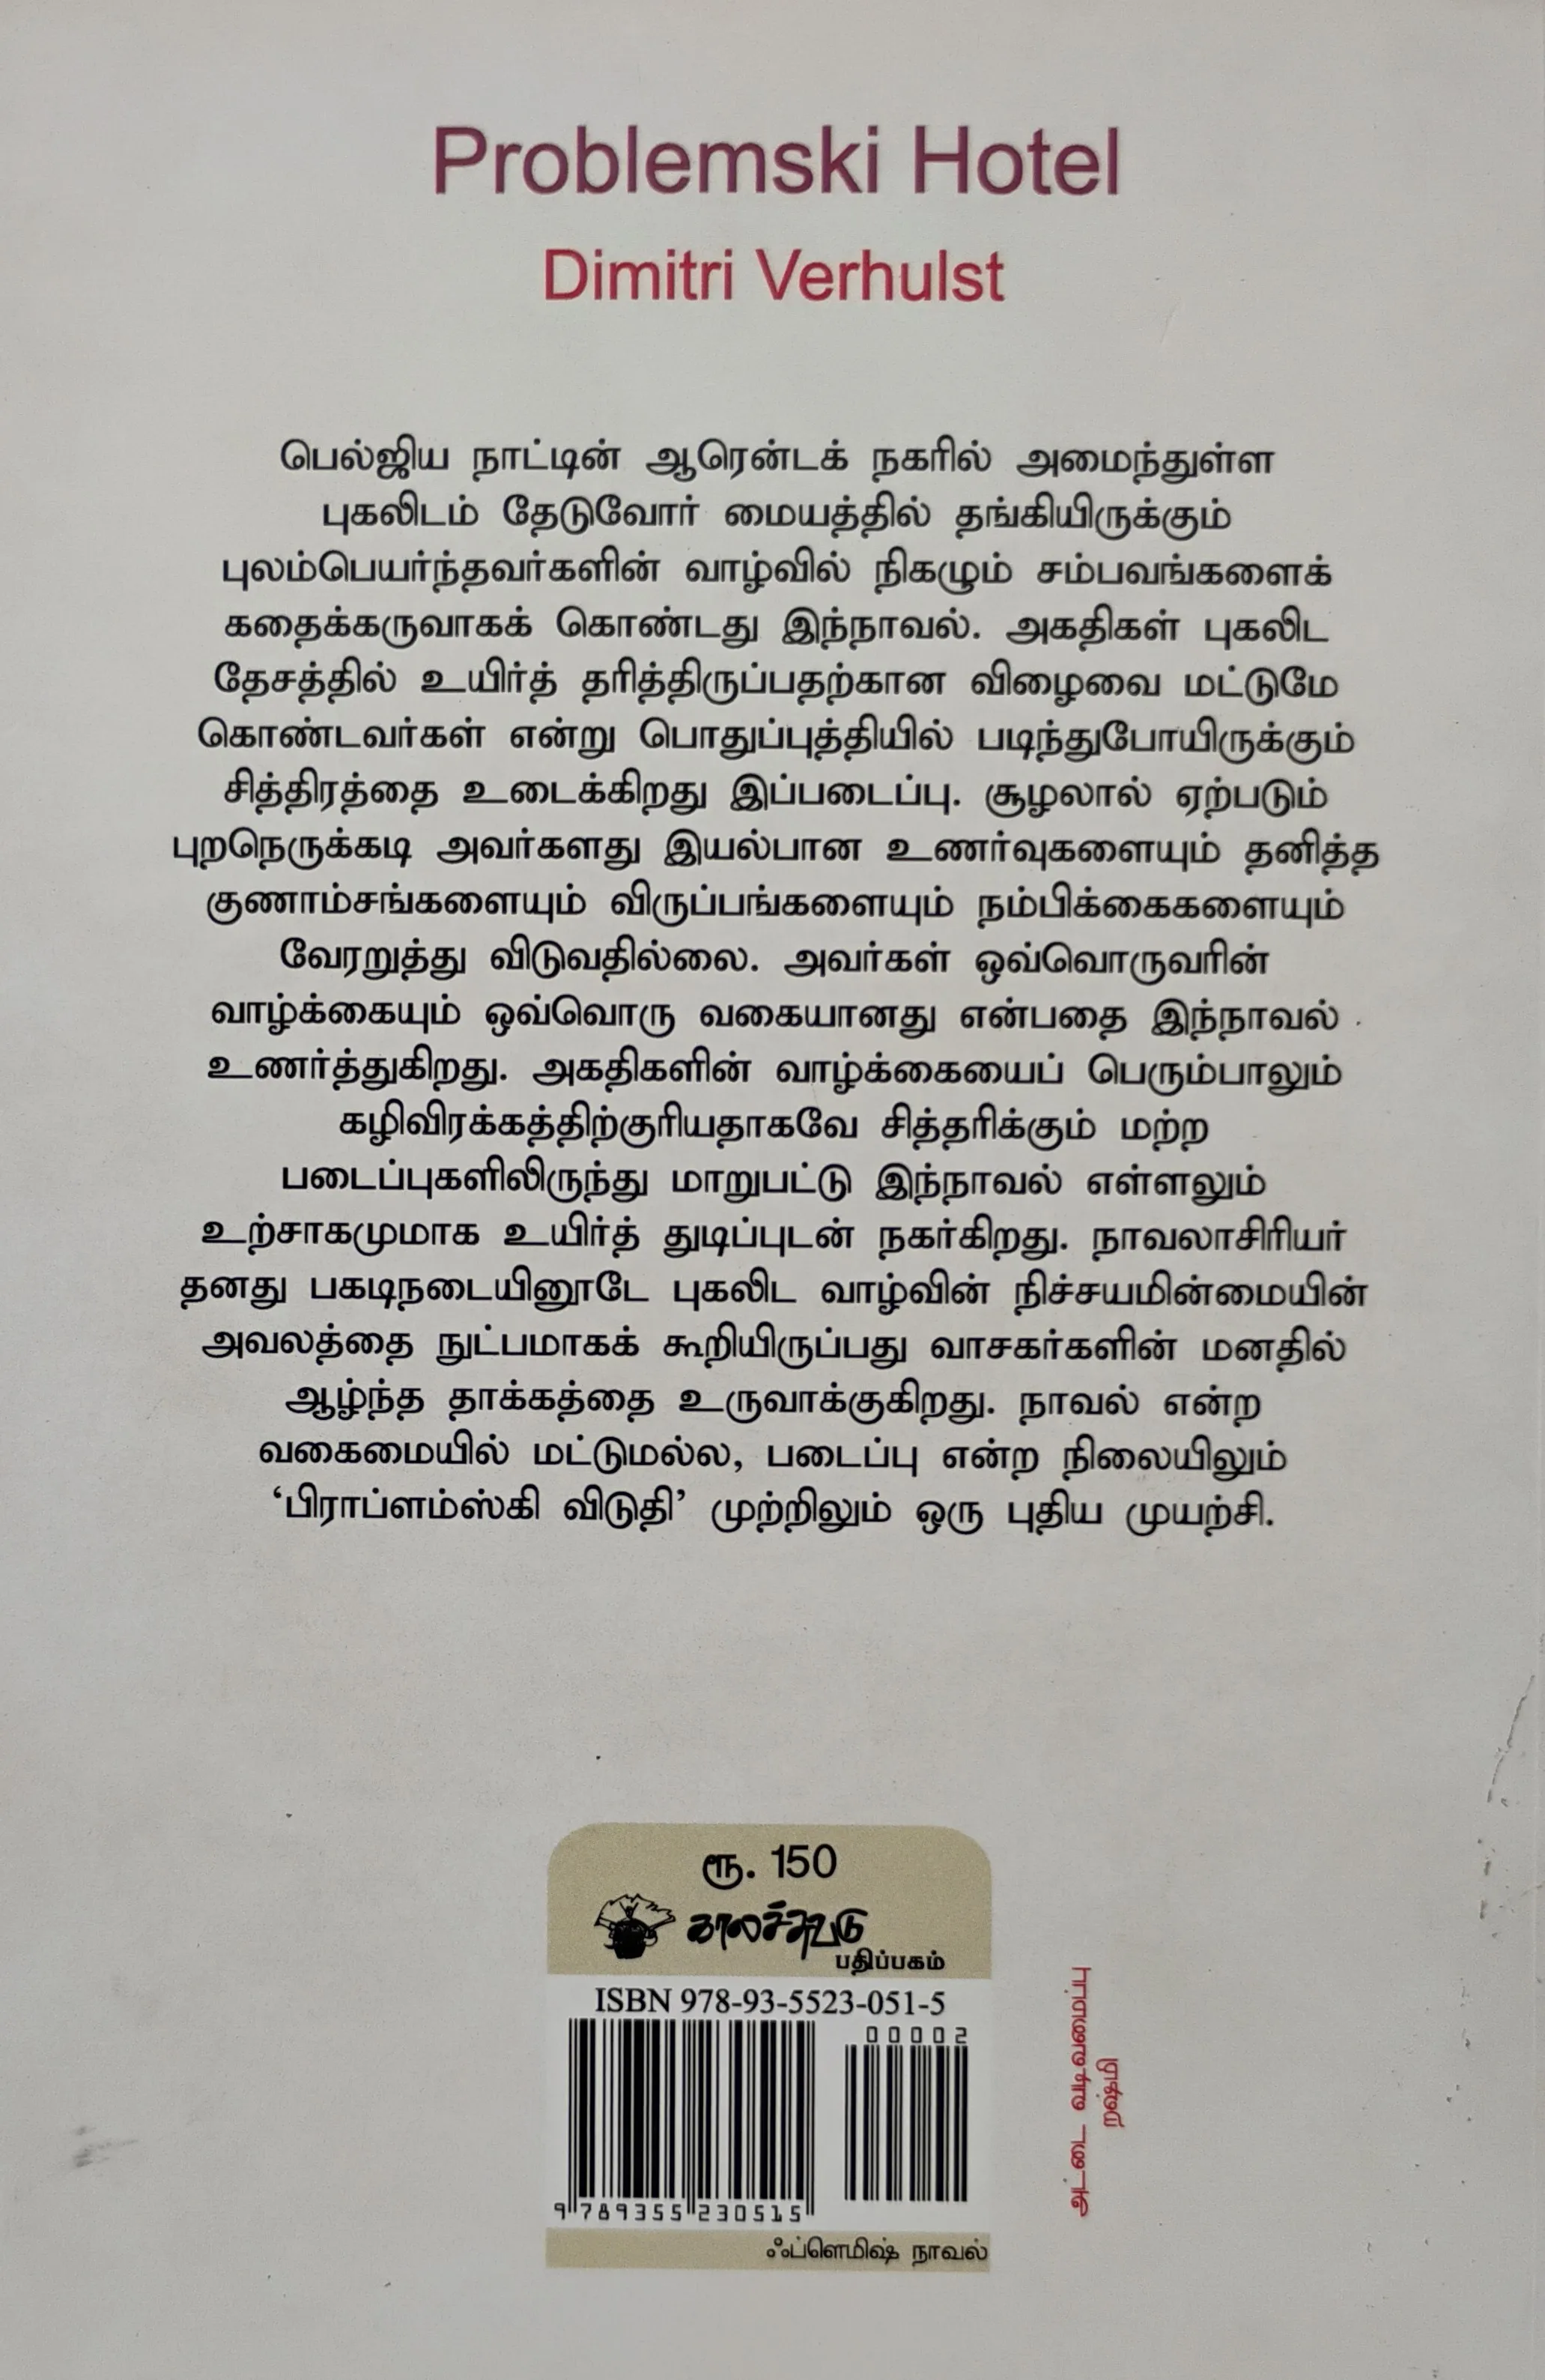 Problemski Hotel
Dimitri Verhulst
பெல்ஜிய நாட்டின் ஆரென்டக் நகரில் அமைந்துள்ள
புகலிடம் தேடுவோர் மையத்தில் தங்கியிருக்கும்
புலம்பெயர்ந்தவர்களின் வாழ்வில் நிகழும் சம்பவங்களைக்
கதைக்கருவாகக் கொண்டது இந்நாவல். அகதிகள் புகலிட
தேசத்தில் உயிர்த் தரித்திருப்பதற்கான விழைவை மட்டுமே
கொண்டவர்கள் என்று பொதுப்புத்தியில் படிந்துபோயிருக்கும்
சித்திரத்தை உடைக்கிறது இப்படைப்பு. சூழலால் ஏற்படும்
புறநெருக்கடி அவர்களது இயல்பான உணர்வுகளையும் தனித்த
குணாம்சங்களையும் விருப்பங்களையும் நம்பிக்கைகளையும்
வேரறுத்து விடுவதில்லை. அவர்கள் ஒவ்வொருவரின்
வாழ்க்கையும் ஒவ்வொரு வகையானது என்பதை இந்நாவல்
உணர்த்துகிறது. அகதிகளின் வாழ்க்கையைப் பெரும்பாலும்
கழிவிரக்கத்திற்குரியதாகவே சித்தரிக்கும் மற்ற
படைப்புகளிலிருந்து மாறுபட்டு இந்நாவல் எள்ளலும்
உற்சாகமுமாக உயிர்த் துடிப்புடன் நகர்கிறது. நாவலாசிரியர்
தனது பகடிநடையினூடே புகலிட வாழ்வின் நிச்சயமின்மையின்
அவலத்தை நுட்பமாகக் கூறியிருப்பது வாசகர்களின் மனதில்
ஆழ்ந்த தாக்கத்தை உருவாக்குகிறது. நாவல் என்ற
வகைமையில் மட்டுமல்ல, படைப்பு என்ற நிலையிலும்
‘பிராப்ளம்ஸ்கி விடுதி’ முற்றிலும் ஒரு புதிய முயற்சி.
ரூ. 150
காலச்சுவடு
பதிப்பகம்
ISBN 978-93-5523-051-5
00002
9 789355 230515
ஃப்ளெமிஷ் நாவல்
அட்டை வடிவமைப்பு
றிஷ்மி